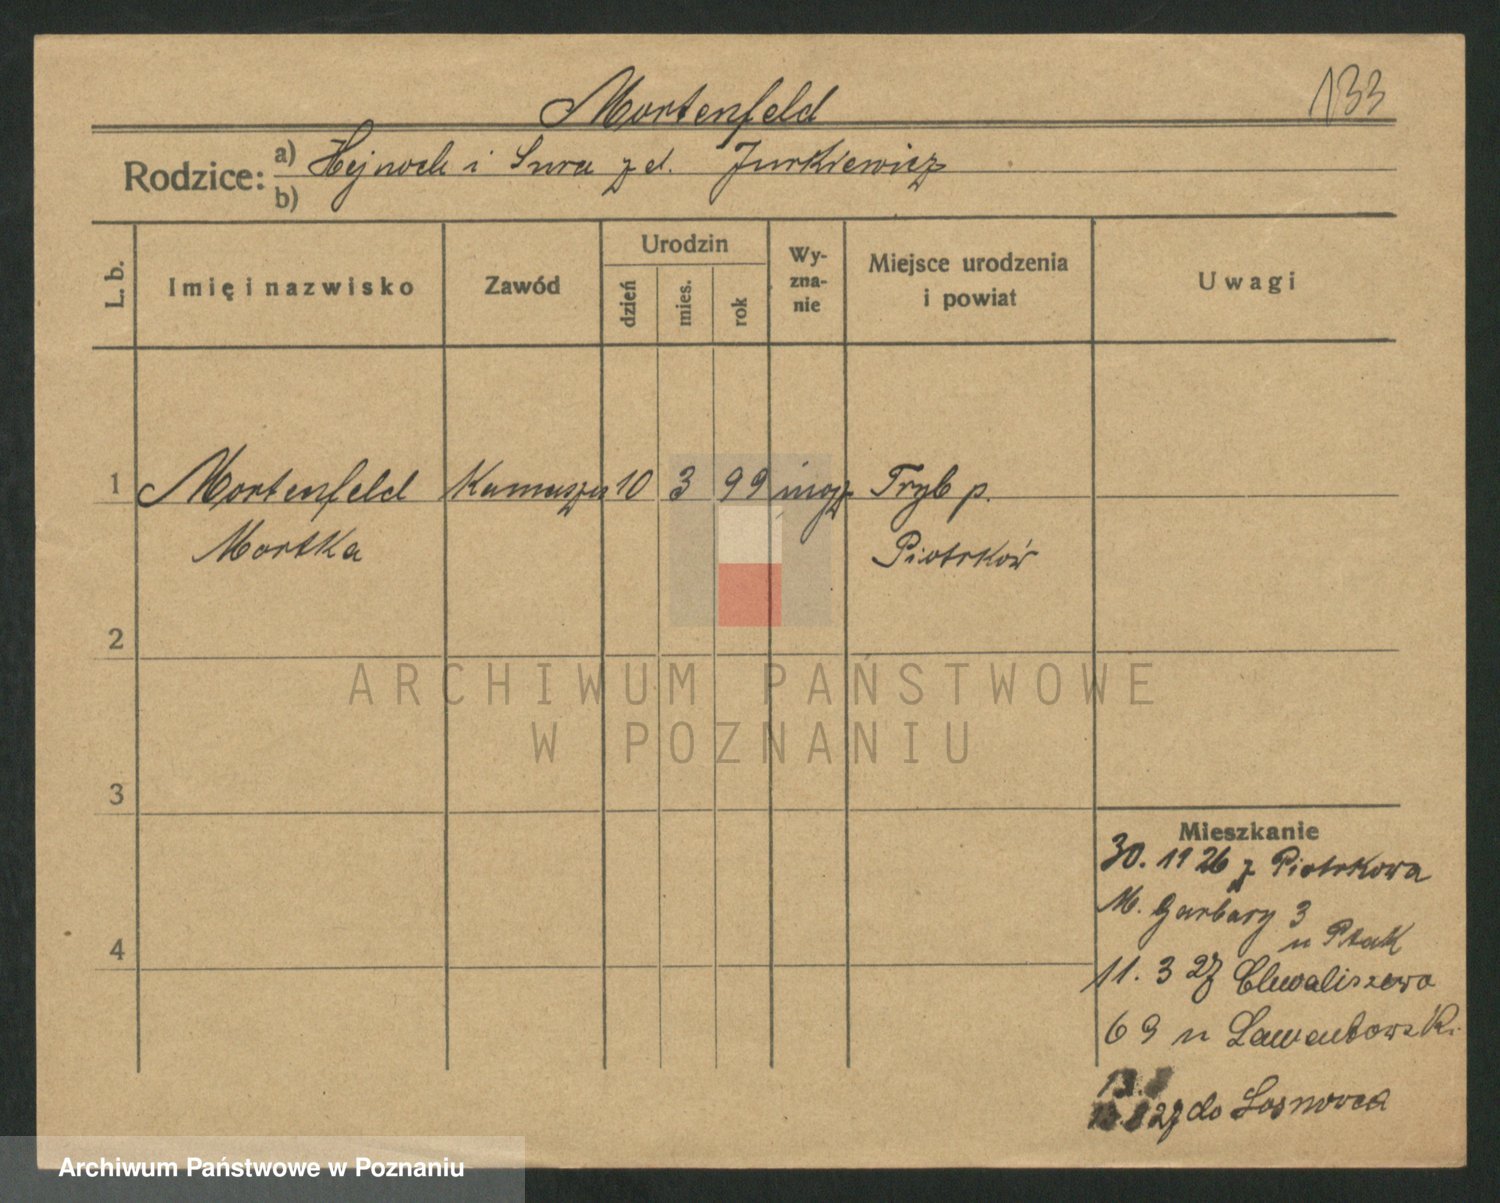 Mortenfeld
133
Rodzice: a) Hejnoch i Sura z d. Jurkiewicz
b)
L. b.
Imię i nazwisko
Zawód
Urodzin
dzień
mies.
rok
Wy-
zna-
nie
Miejsce urodzenia
i powiat
Uwagi
1 Mortenfeld Kamasznik 10 3 99 mojż Tryb p.
Mortka Piotrków
2
3
4
Mieszkanie
30. 11 26 z Piotrkowa
M. Garbary 3
u Ptak
11. 3 27 Chwaliszewo
69 u
27 do Sosnowca
ARCHIWUM PAŃSTWOWE
W POZNANIU
Archiwum Państwowe w Poznaniu